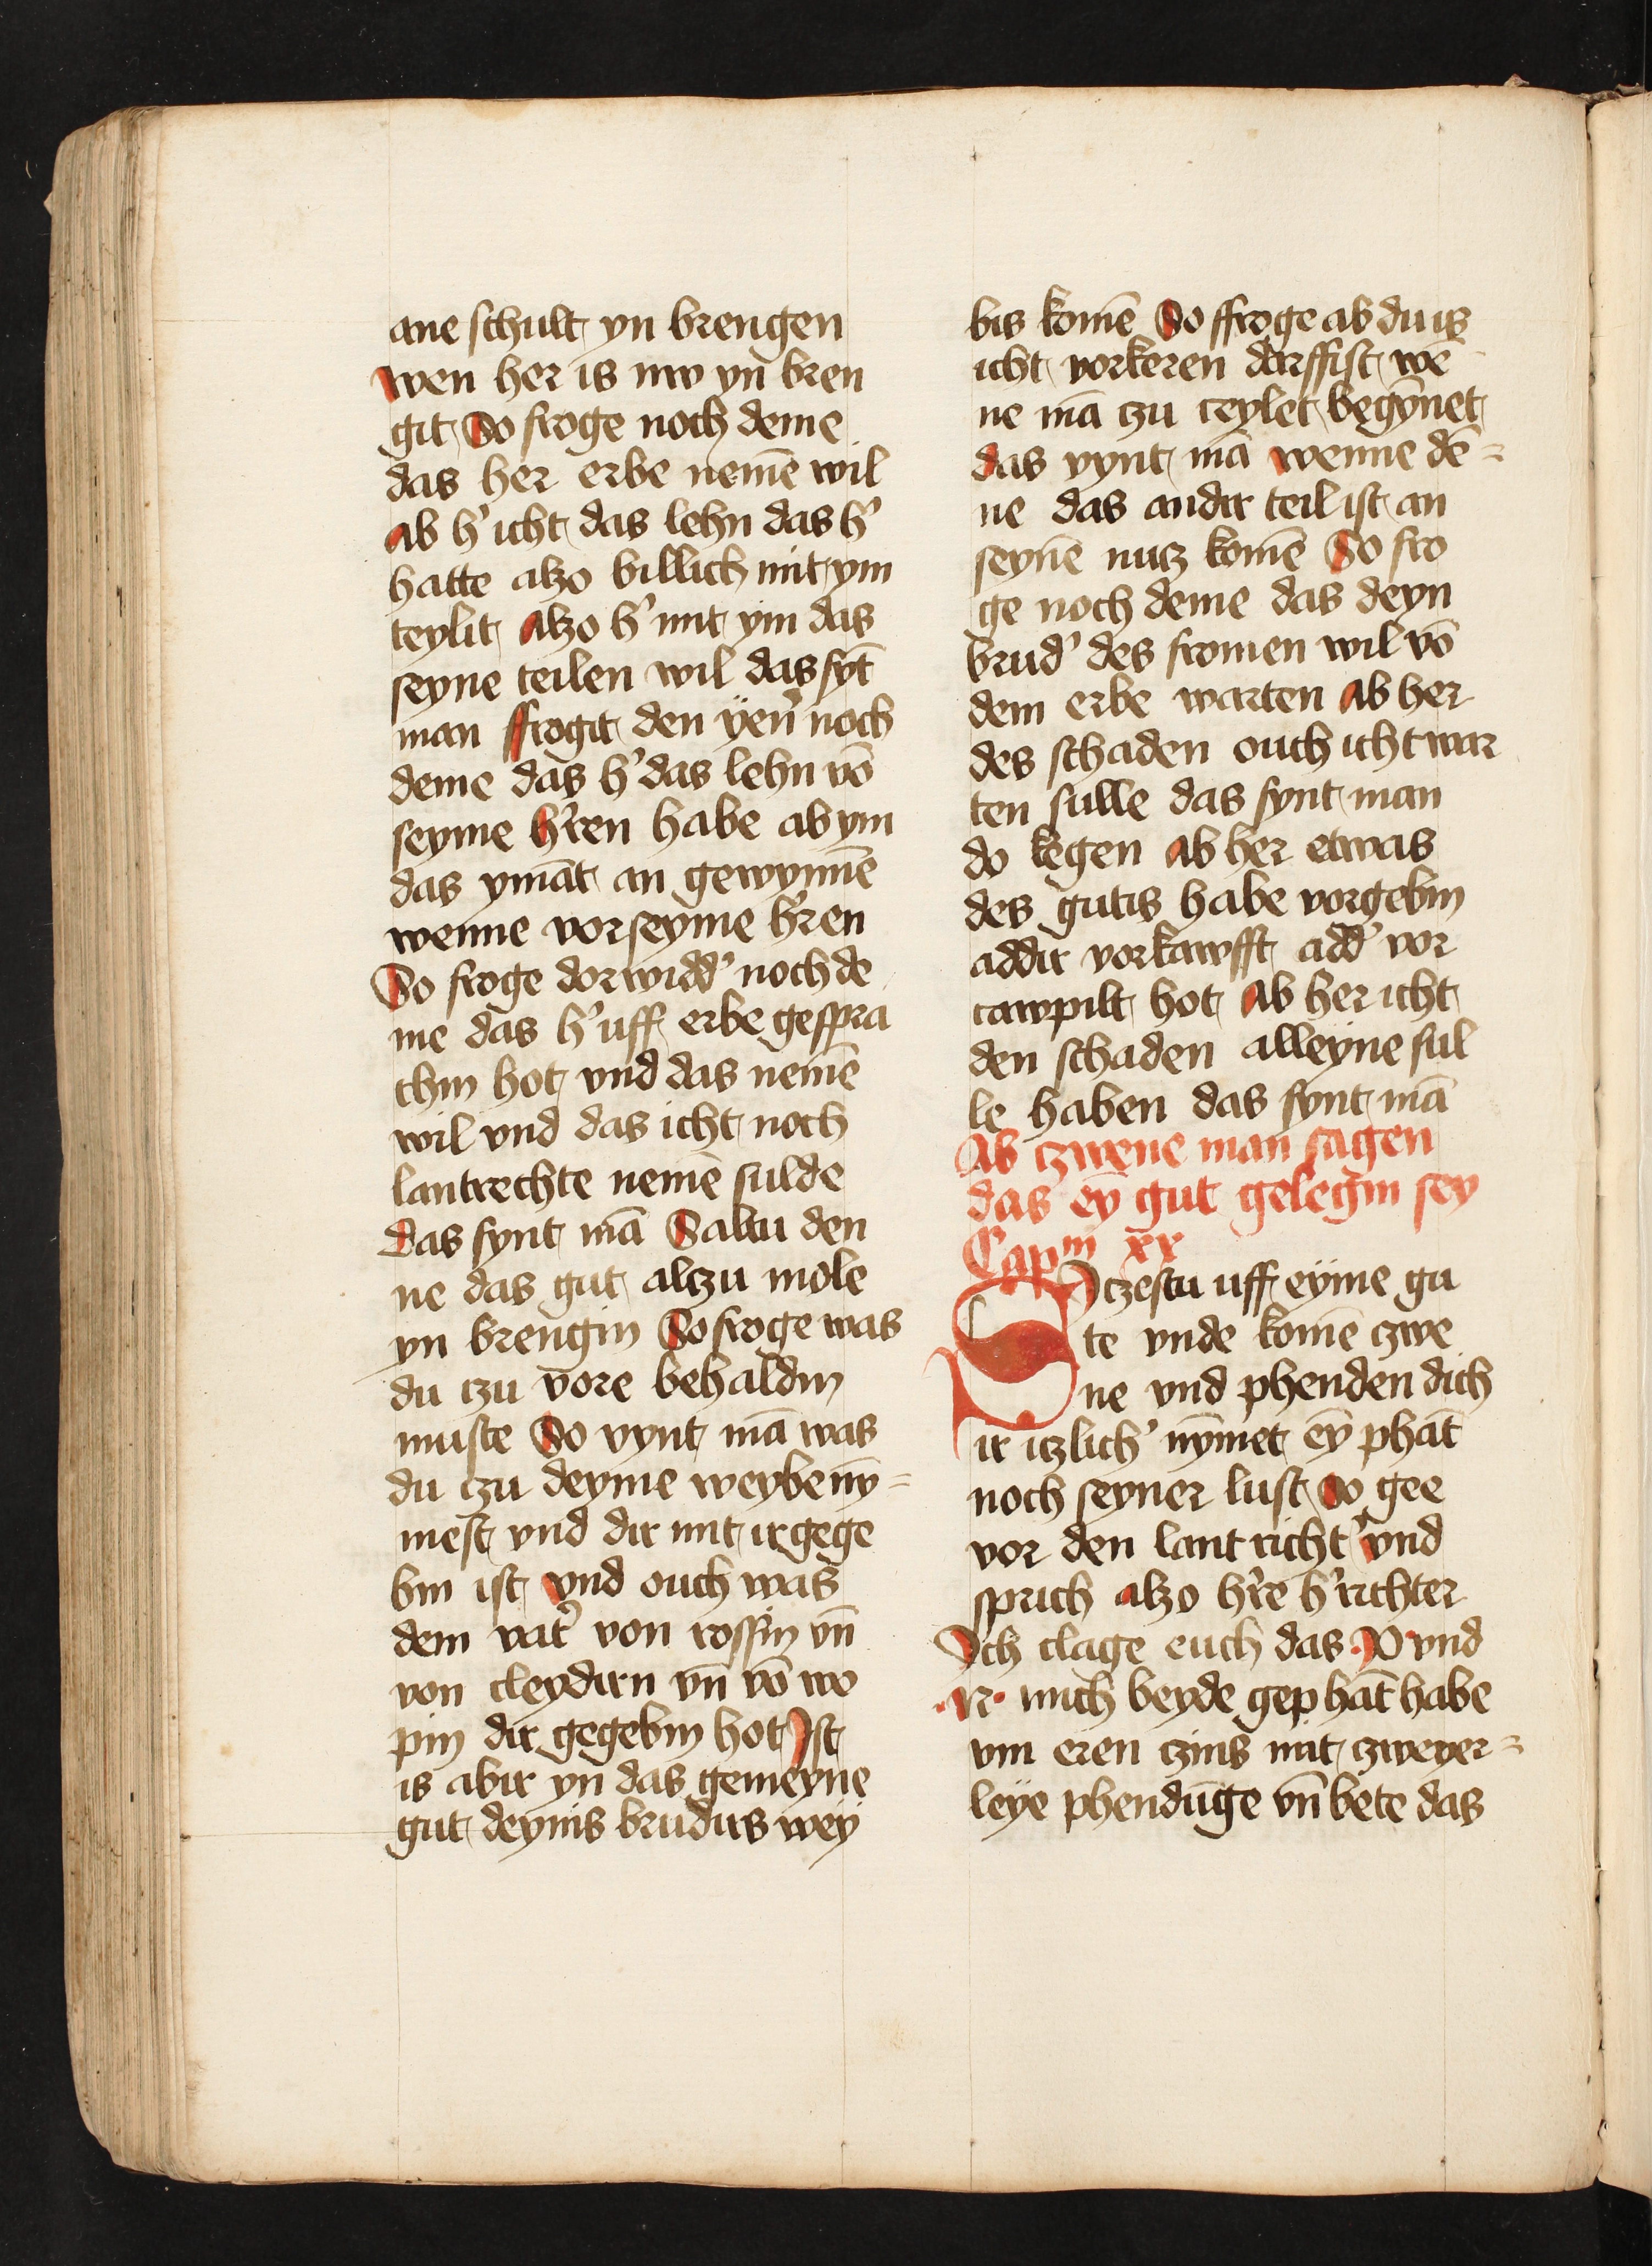 ane schult yn brengen
wen her is nw yn bren
git So froge noch deme
das her erbe nemē wil
ab h' icht das lehn das h'
hatte alzo billich mit ym
teylit Alzo h' mit ym das
seyne teilen wil das fyt̄
man ffrogit den yen' noch
deme das h' das lehn vō
seyme h'ren habe ab ym
das ymāt an gewynnē
wenne vor seyme h'ren
So froge dorwidd' noch de
me das h' uff erbe gespra
chin hot vnd das nemē
wil vnd das icht noch
lantrechte nemē sulde
das fynt mā Saltu den
ne das gut alczu mole
yn brengin So froge was
du czu vore behaldin
muste So vynt mā was
du czu deyme weybe nȳ=
mest vnd dir mit ir gege
bin ist vnd ouch was
dem vat' von rossin vn̄
von cleydirn vn̄ vō wo
pin dir gegebin hot Ist
is abir yn das gemeyne
gut deynis brudirs wey
bis komē So ffroge ab du is
icht vorkeren dorffist we̅
ne mā czu teylet begȳnet
das vynt mā wenne dē=
ne das andir teil ist an
seynē nucz komē So fro
ge noch deme das deyn
brud' des fromen wil vō
dem erbe warten Ab her
des schaden ouch icht war
ten sulle das fynt man
do kegen Ab her etwas
des gutis habe vorgebin
addir vorkawfft add' vor
tawpilt hot Ab her icht
den schaden alleyne sul
le haben das fynt mā
Ab czwene man sagen
das eȳ gut gelegin sey
Capm xx
Siczestu uff eyme gu
te vnde komē czwe
ne vnd phenden dich
ir iczlich' nȳmet eȳ phāt
noch seyner lust So gee
vor den lant richt' vnd
sprich alzo h're h' richter
Ich clage euch das .P. vnd
.N. mich beyde gephāt habe
vm eren czins mit czweyer=
leye phendūge vn̄ bete das